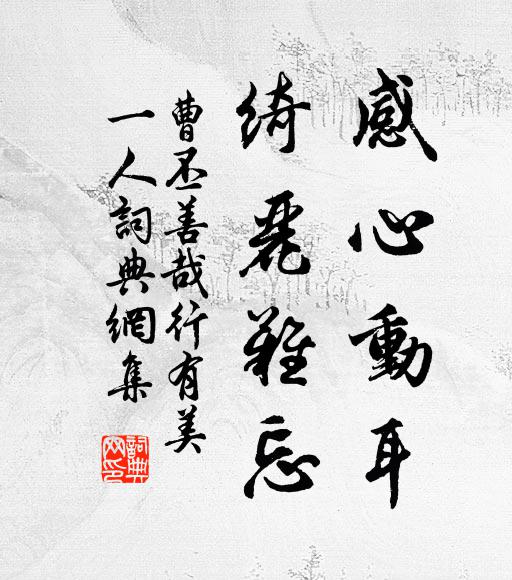 感心動耳
綺麗難忘
曹丕善哉行有美
一人詞典網集
詞典
网印